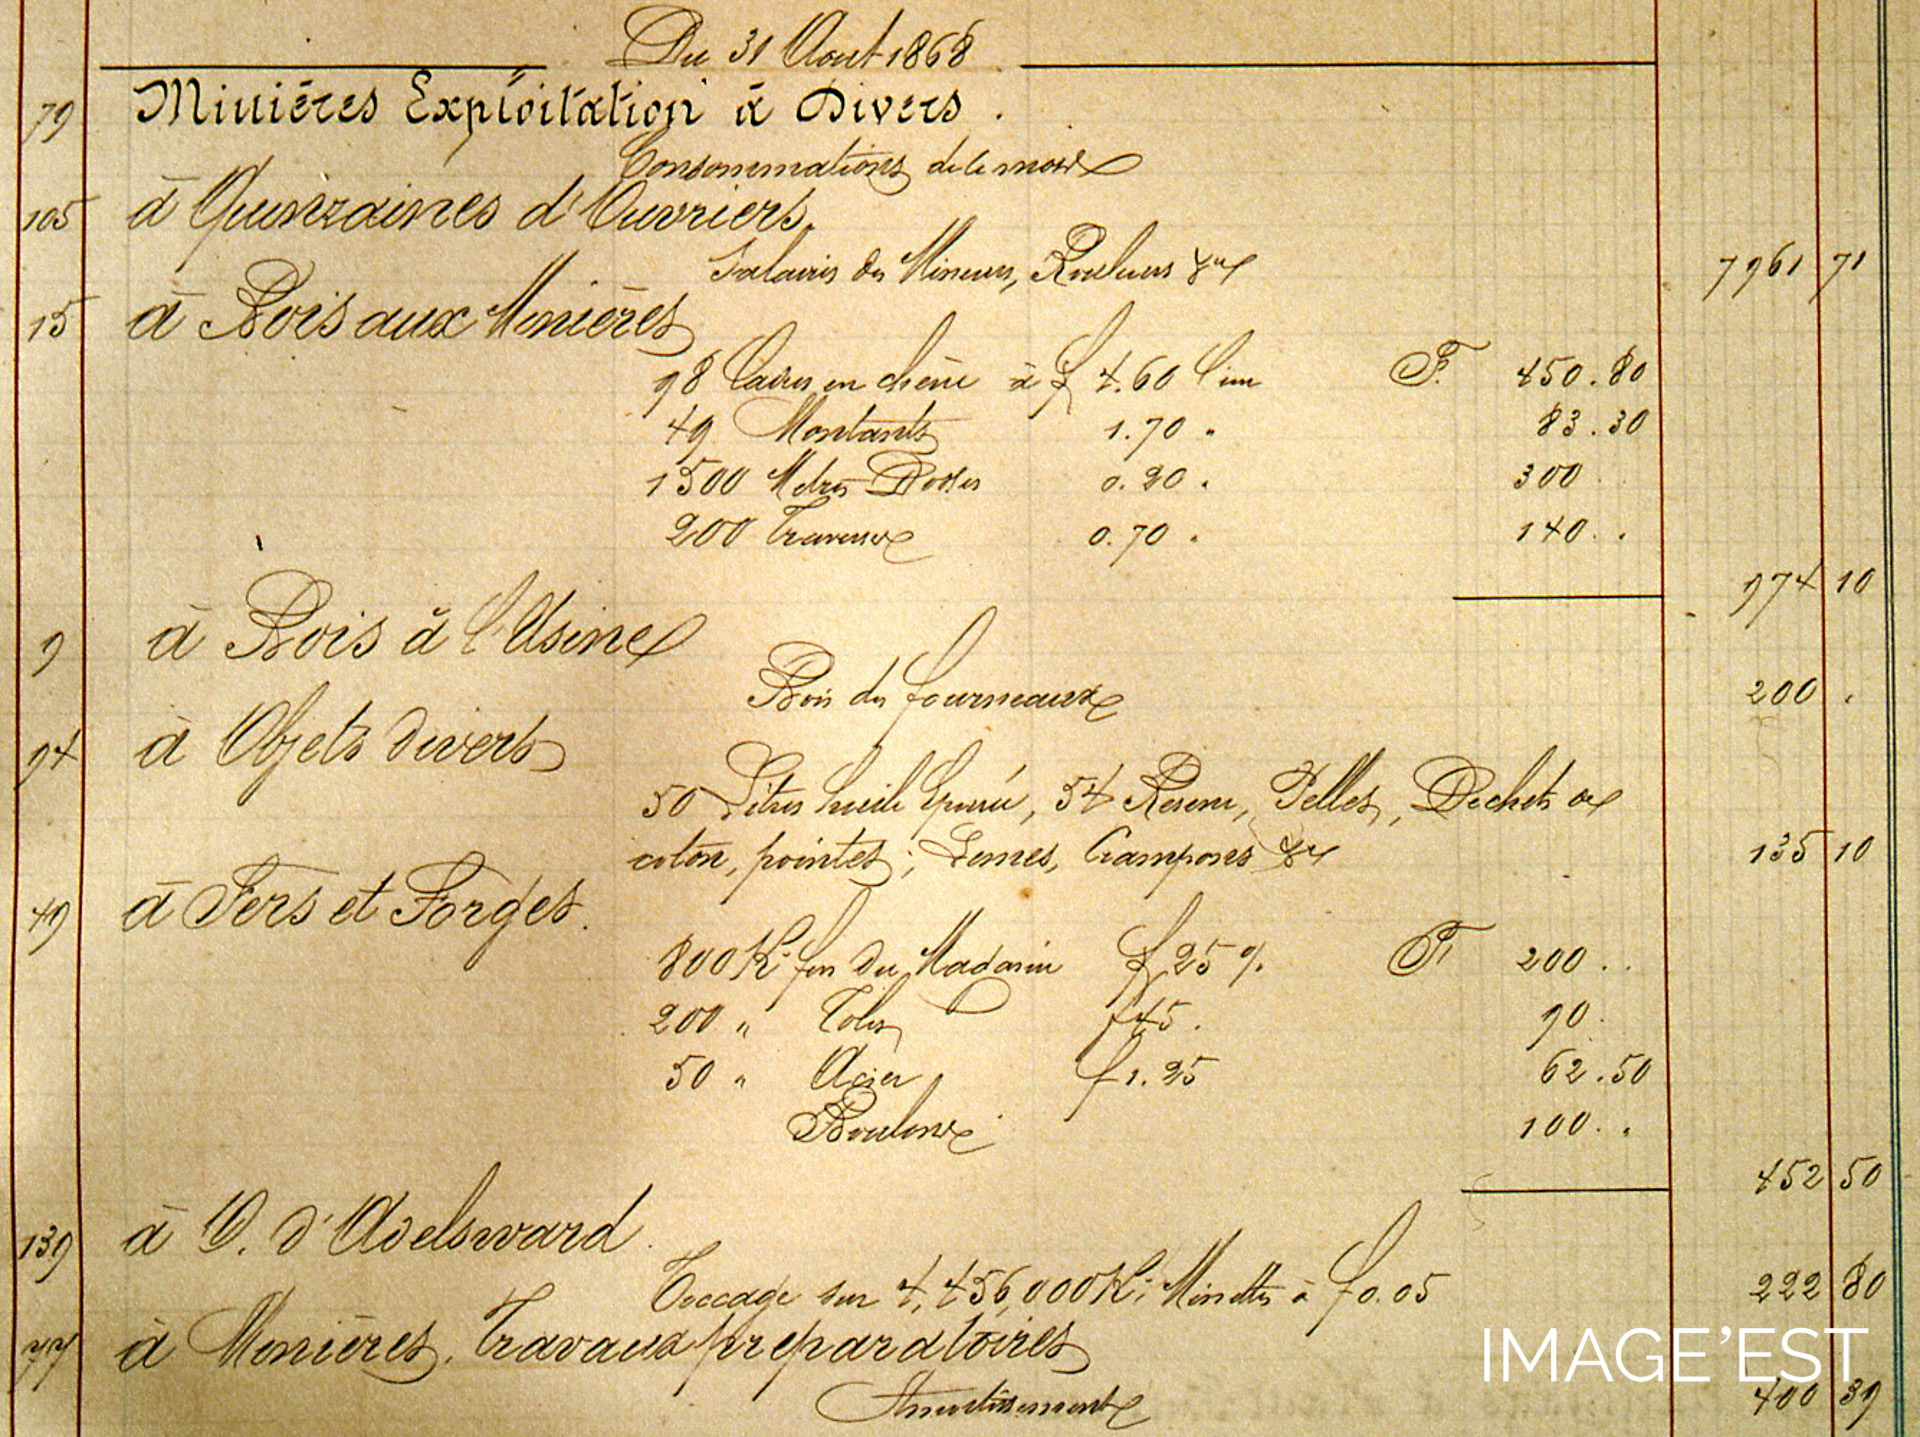 Du 31 Aout 1868
79 Minières Exploitation à Divers.
Consommations de le mois
105 à Quinzaines d'Ouvriers.
Salaires des Mineurs, Rouleurs &a 7961 71
15 à Bois aux Minières
98 Cadres en chêne à f 4.60 l'un F. 450.80
49 Montants 1.70 " 83.30
1500 Mètres Dosses 0.20 " 300
200 Traverses 0.70 " 140. "
974 10
9 à Bois à l'Usine
Bois des fourneaux 200 "
94 à Objets divers
50 Litres huile Epurée, 54 Pelles, Dechets de
coton, pointes; Limes, Crampons &a 135 10
49 à Fers et Forges.
800 K. fer du Magasin f 25 % F. 200 . .
200 " Toles f 45. 90.
50 " Acier f 1.25 62.50
Boulons 100. "
452 50
139 à O. d'Adelsward.
Toccage sur 4,456,000 K. Minettes à f 0.05 222 80
77 à Minières, Travaux préparatoires
Amortissement 400 39
IMAGE'EST